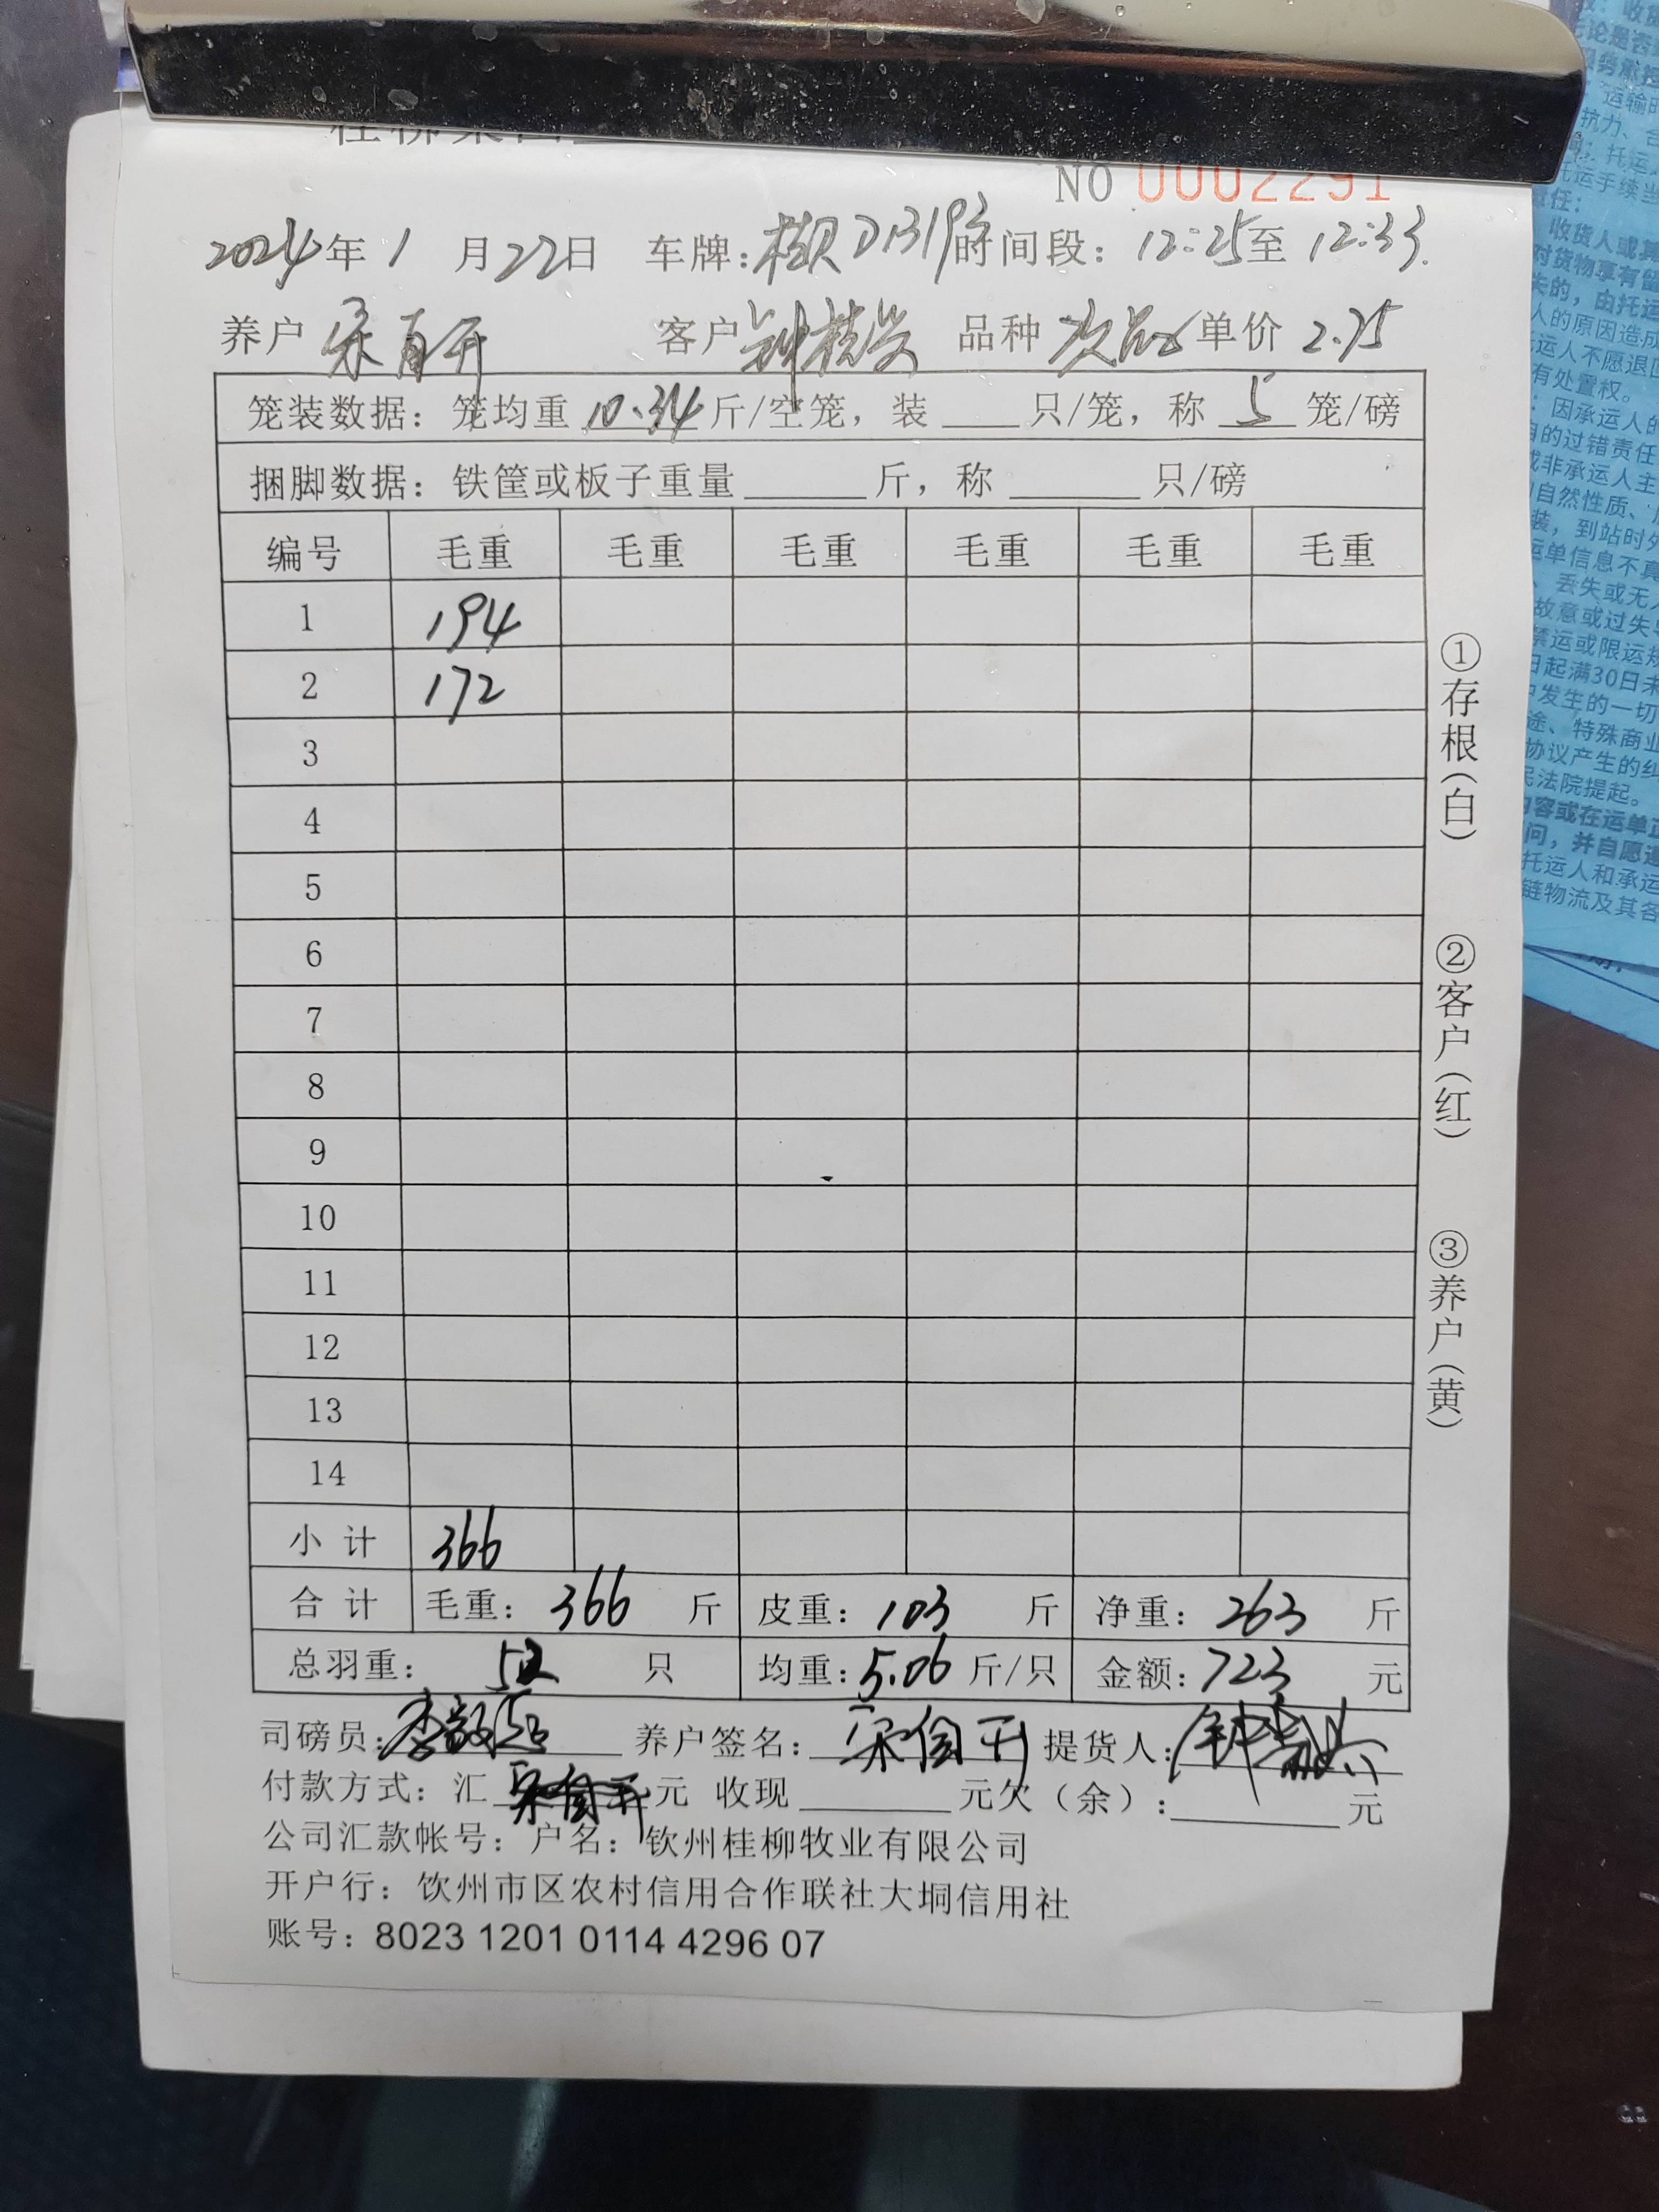 NO 0002291
2024年1月22日 车牌:桂 D1319 时间段:12:25至12:33.
养户 宋自开 客户 钟 品种 次品 单价 2.75
笼装数据:笼均重 10.34 斤/空笼,装____只/笼,称 5 笼/磅
捆脚数据:铁筐或板子重量______斤,称______只/磅
编号 毛重 毛重 毛重 毛重 毛重 毛重
1 194
2 172
3
4
5
6
7
8
9
10
11
12
13
14
小计 366
合计 毛重:366 斤 皮重:103 斤 净重:263 斤
总羽重:52 只 均重:5.06 斤/只 金额:723 元
司磅员:李 养户签名:宋自开 提货人:钟
付款方式:汇 元 收现______元欠(余):______元
公司汇款帐号:户名:钦州桂柳牧业有限公司
开户行:饮州市区农村信用合作联社大垌信用社
账号:8023 1201 0114 4296 07
①存根(白)
②客户(红)
③养户(黄)